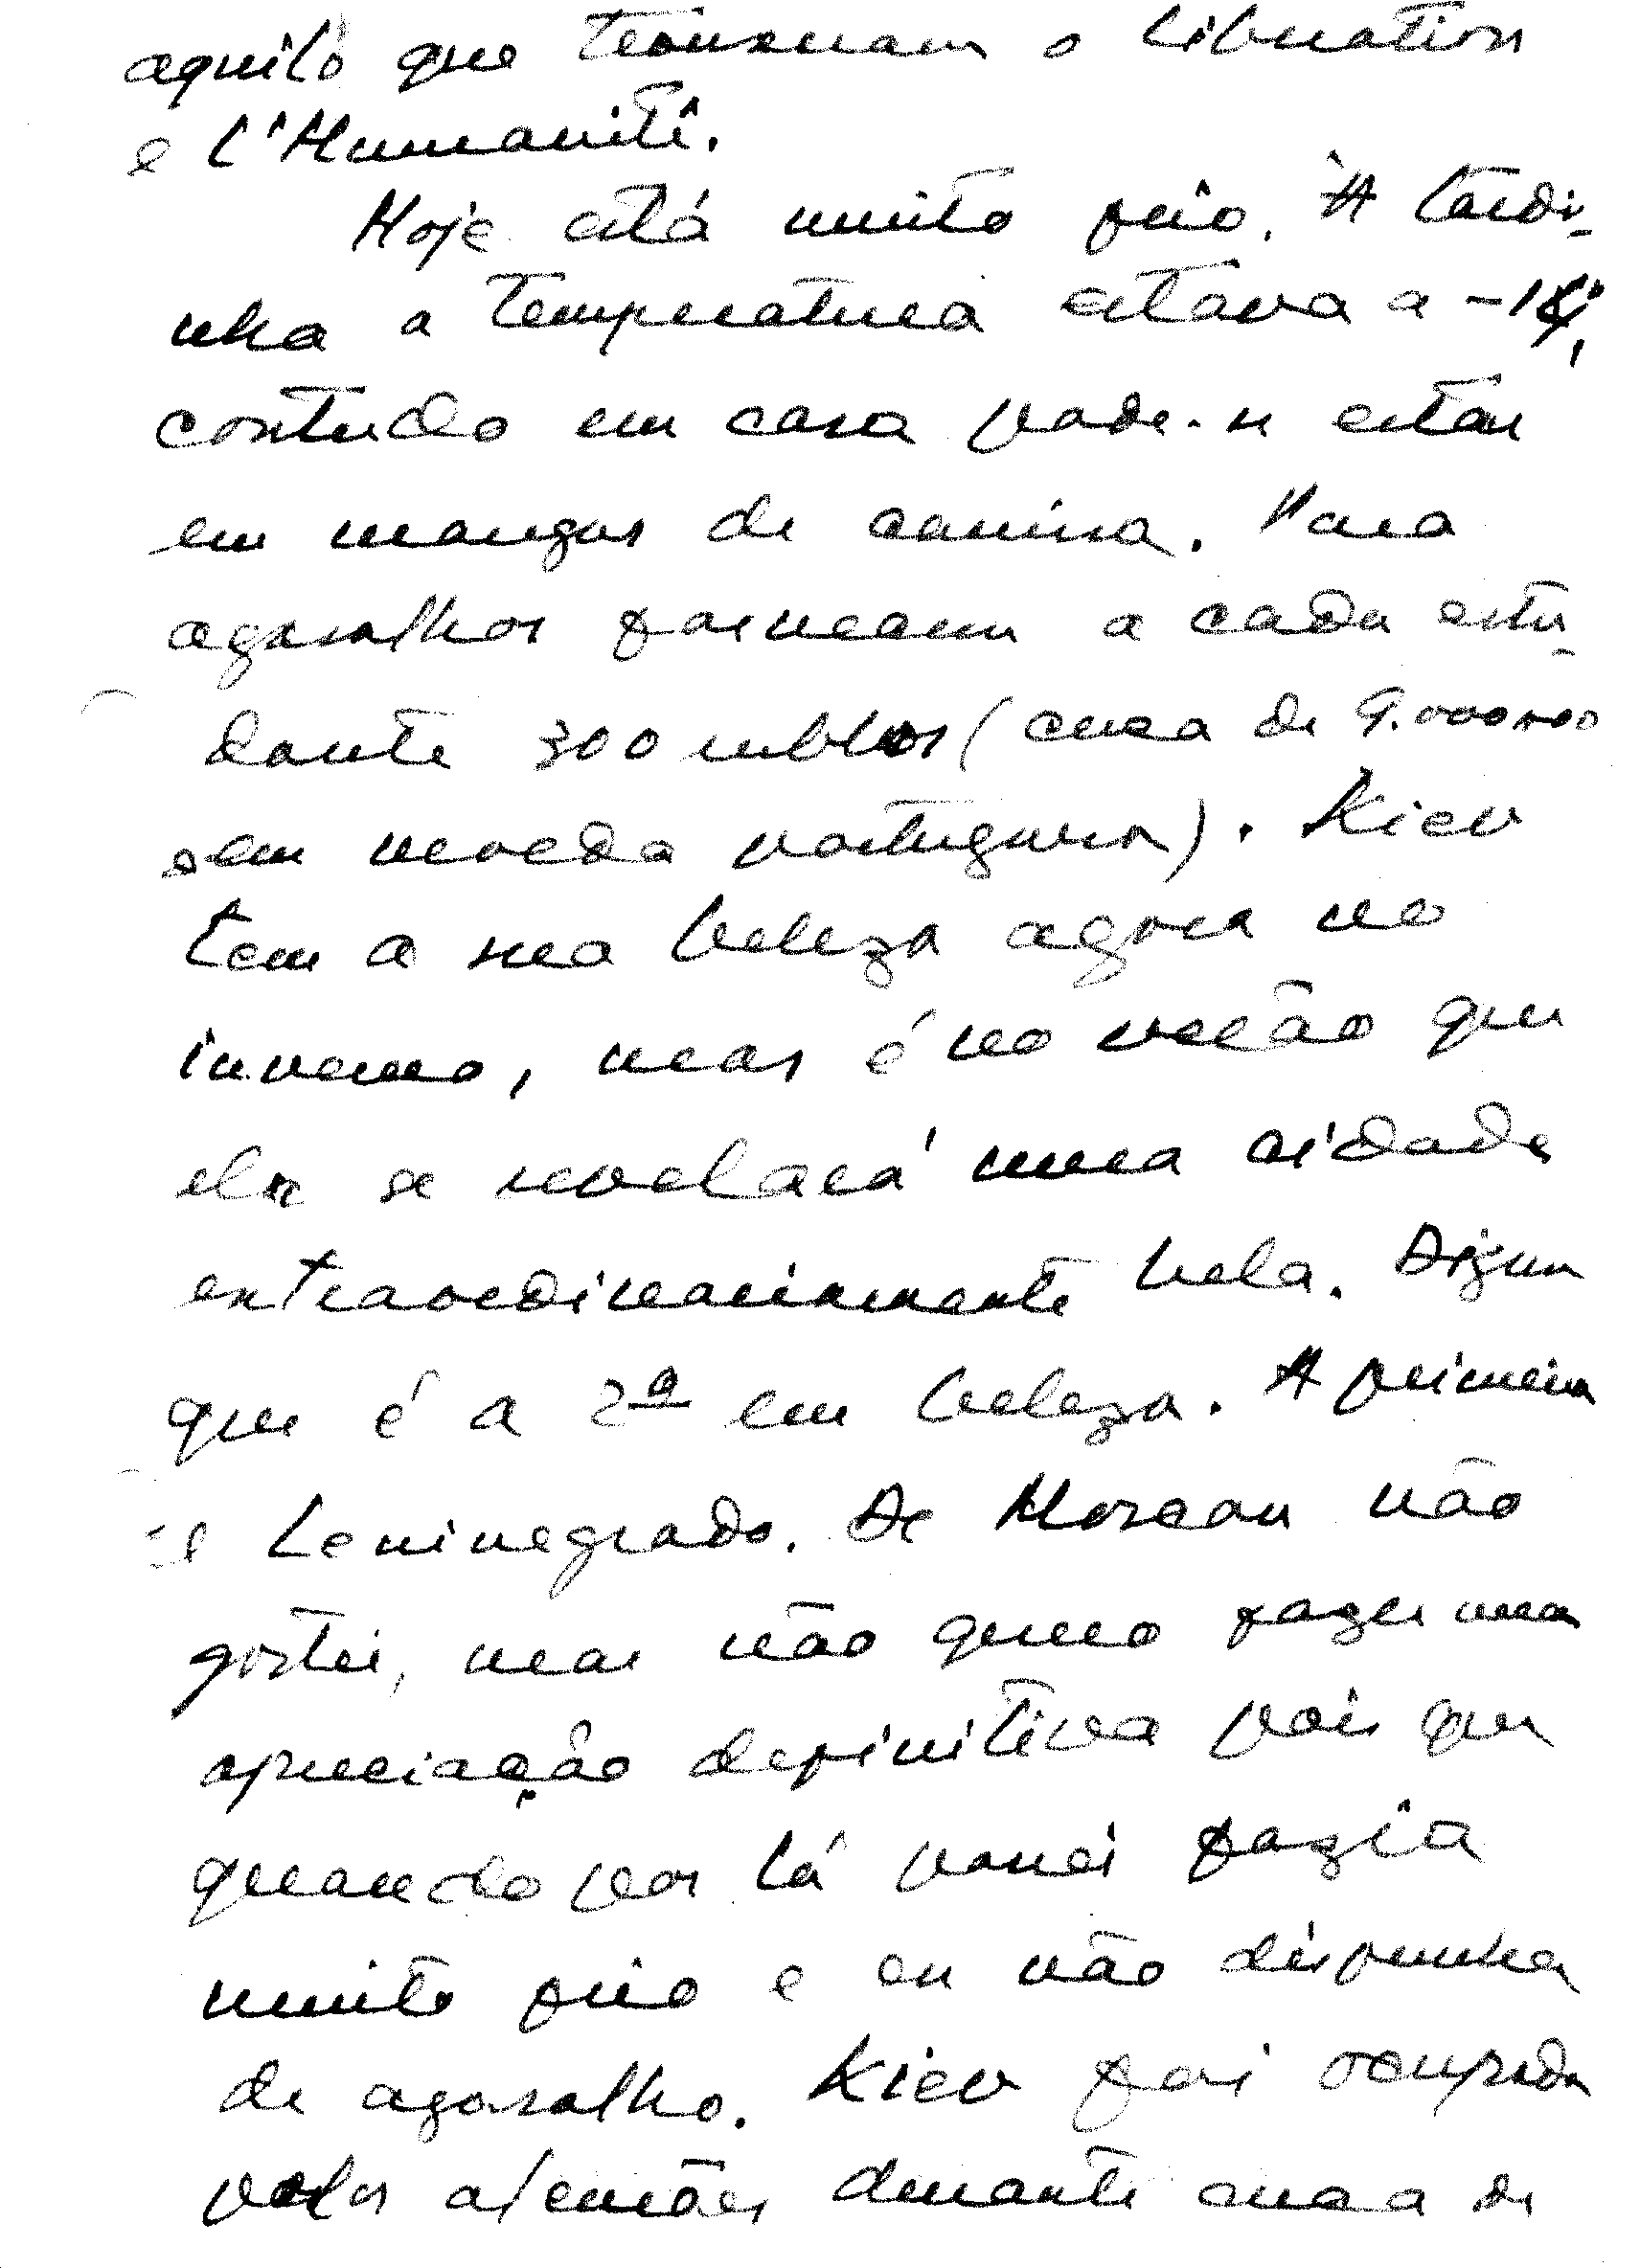 aquilo que transcrevem o Libération
e l'Humanité.
Hoje está muito frio. À tardi-
nha a temperatura estava a -14º,
contudo em casa pode-se estar
em mangas de camisa. Para
agasalhos forneceram a cada estu-
dante 300 rublos (cerca de 9.000$00
em moeda portuguesa). Kiev
tem a sua beleza agora no
inverno, mas é no verão que
ela se revelará uma cidade
extraordinariamente bela. Dizem
que é a 2ª em beleza. A primeira
é Leninegrado. De Moscou não
gostei, mas não quero fazer uma
apreciação definitiva pois que
quando por lá passei fazia
muito frio e eu não dispunha
de agasalho. Kiev foi ocupada
pelos alemães durante cerca de